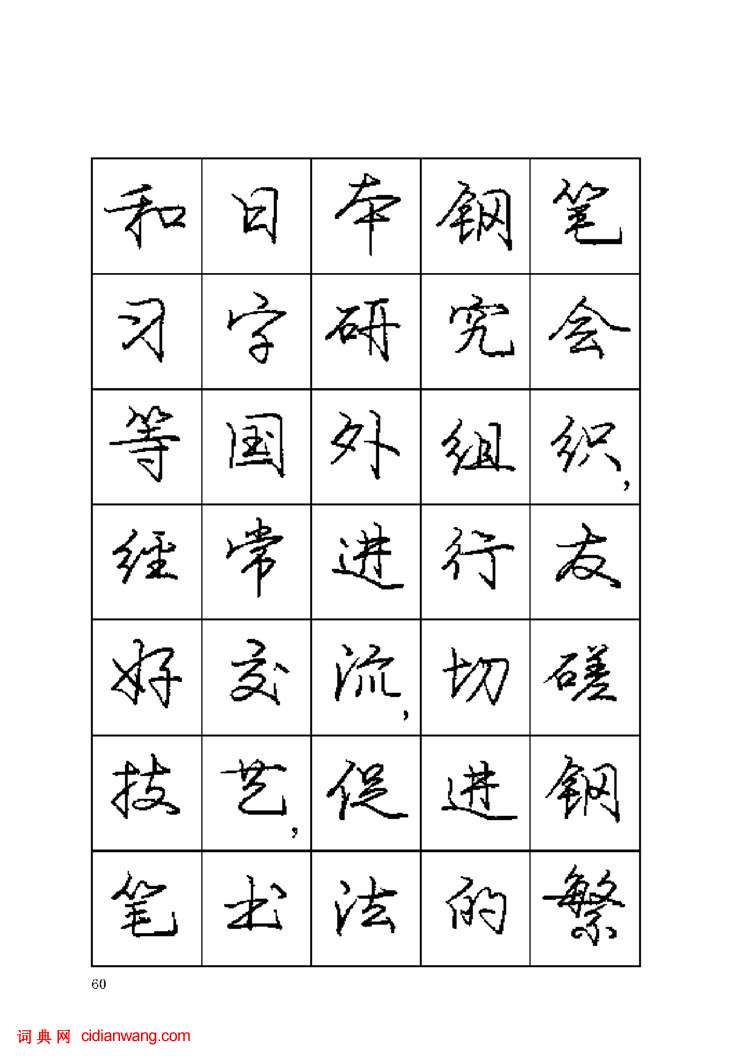 和日本钢笔
习字研究会
等国外组织,
经常进行友
好交流,切磋
技艺,促进钢
笔书法的繁
60
词典网 cidianwang.com